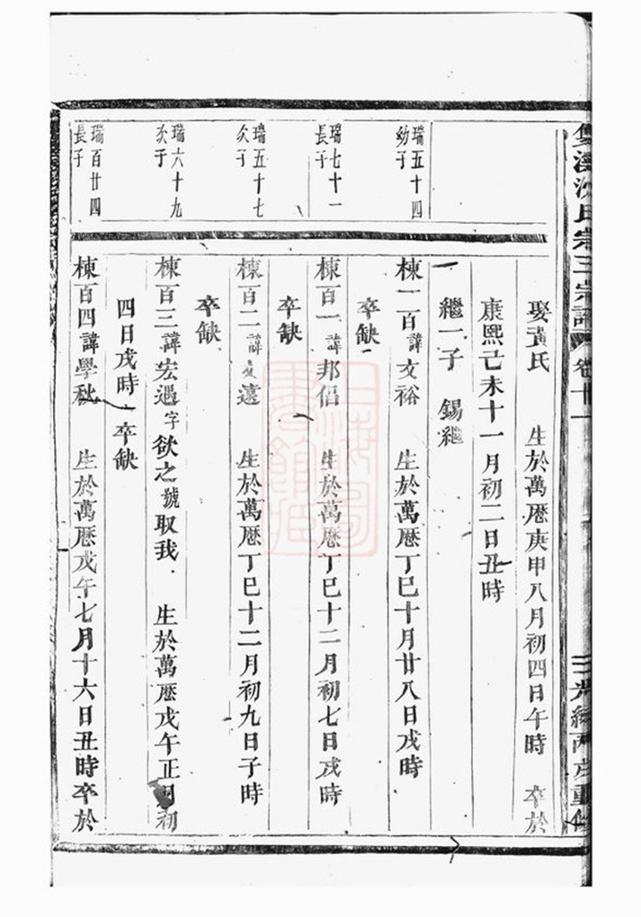 雙溪沈氏三宗譜 卷十一 光緒丙戌重修
瑞五十四
幼子
瑞七十一
長子
瑞五十七
次子
瑞六十九
次子
瑞百廿四
長子
娶黃氏 生於萬厯庚申八月初四日午時 卒於
康熙己未十一月初二日丑時
繼一子 錫繼
棟一百諱文裕 生於萬厯丁巳十月廿八日戌時
卒缺
棟百一諱邦侣 生於萬厯丁巳十二月初七日戌時
卒缺
棟百二諱遠 生於萬厯丁巳十二月初九日子時
卒缺
棟百三諱宏遇字欲之號取我 生於萬厯戊午正月初
四日戌時 卒缺
棟百四諱學秋 生於萬厯戊午七月十六日丑時卒於
上海圖書館藏